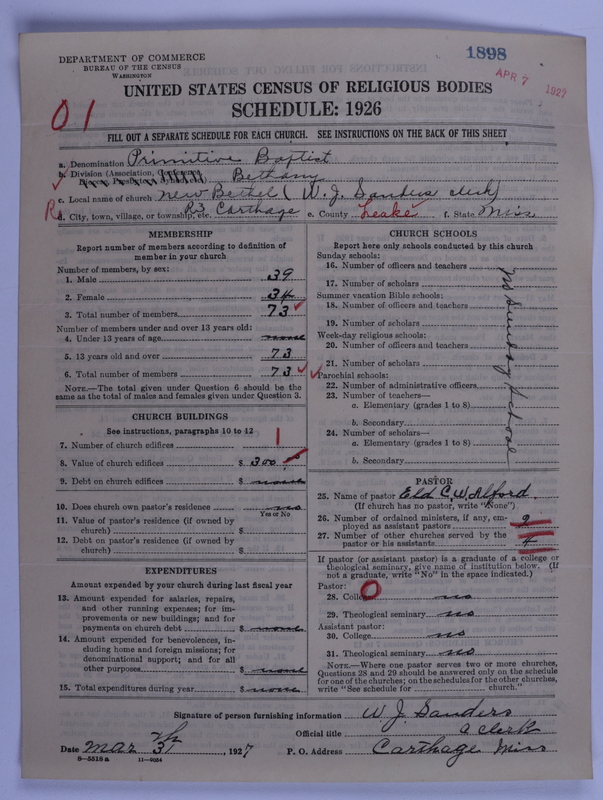 DEPARTMENT OF COMMERCE
BUREAU OF THE CENSUS
WASHINGTON
1898
APR 7 1927
UNITED STATES CENSUS OF RELIGIOUS BODIES
SCHEDULE: 1926
01
FILL OUT A SEPARATE SCHEDULE FOR EACH CHURCH. SEE INSTRUCTIONS ON THE BACK OF THIS SHEET
a. Denomination Primitive Baptist
b. Division (Association, Bethany
c. Local name of church New Bethel (W. J. Sanders clerk)
d. City, town, village, or township, etc. R3 Carthage e. County Leake f. State Miss
MEMBERSHIP
Report number of members according to definition of
member in your church
Number of members, by sex:
1. Male 39
2. Female 34
3. Total number of members 73
Number of members under and over 13 years old:
4. Under 13 years of age none
5. 13 years old and over 73
6. Total number of members 73
NOTE.—The total given under Question 6 should be
the same as the total of males and females given under Question 3.
CHURCH BUILDINGS
See instructions, paragraphs 10 to 12
7. Number of church edifices 1
8. Value of church edifices $ 300
9. Debt on church edifices $ none
10. Does church own pastor's residence no
Yes or No
11. Value of pastor's residence (if owned by
church) $
12. Debt on pastor's residence (if owned by
church) $
EXPENDITURES
Amount expended by your church during last fiscal year
13. Amount expended for salaries, repairs,
and other running expenses; for im-
provements or new buildings; and for
payments on church debt $ none
14. Amount expended for benevolences, in-
cluding home and foreign missions; for
denominational support; and for all
other purposes $ none
15. Total expenditures during year $ none
CHURCH SCHOOLS
Report here only schools conducted by this church
Sunday schools:
16. Number of officers and teachers
17. Number of scholars
Summer vacation Bible schools:
18. Number of officers and teachers
19. Number of scholars
Week-day religious schools:
20. Number of officers and teachers
21. Number of scholars
Parochial schools:
22. Number of administrative officers
23. Number of teachers—
a. Elementary (grades 1 to 8)
b. Secondary
24. Number of scholars—
a. Elementary (grades 1 to 8)
b. Secondary
no Sunday School
PASTOR
25. Name of pastor Eld C. W. Alford
(If church has no pastor, write "None")
26. Number of ordained ministers, if any, em-
ployed as assistant pastors
27. Number of other churches served by the
pastor or his assistants 4
If pastor (or assistant pastor) is a graduate of a college or
theological seminary, give name of institution below. (If
not a graduate, write "No" in the space indicated.)
Pastor:
28. College no
29. Theological seminary no
Assistant pastor:
30. College no
31. Theological seminary no
NOTE.—Where one pastor serves two or more churches,
Questions 28 and 29 should be answered only on the schedule
for one of the churches; on the schedules for the other churches,
write "See schedule for church."
Signature of person furnishing information W J Sanders
Official title a clerk
Date Mar 1927 P. O. Address Carthage Miss
8—5518 a 11—9054